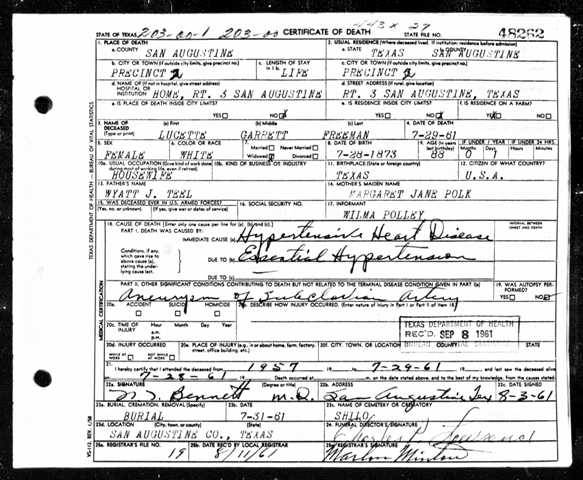 443 x 27
203-00-1 203-00
STATE OF TEXAS CERTIFICATE OF DEATH STATE FILE NO. 48262
1. PLACE OF DEATH 2. USUAL RESIDENCE (Where deceased lived. If institution: residence before admission)
a. COUNTY SAN AUGUSTINE a. STATE TEXAS b. COUNTY SAN AUGUSTINE
b. CITY OR TOWN (If outside city limits, give precinct no.) c. LENGTH OF STAY in 1 b. c. CITY OR TOWN (If outside city limits, give precinct no.)
PRECINCT 2 LIFE PRECINCT 2
d. NAME OF (If not in hospital, give street address) HOSPITAL OR INSTITUTION d. STREET ADDRESS (If rural, give location)
HOME, RT. 3 SAN AUGUSTINE RT. 3 SAN AUGUSTINE, TEXAS
e. IS PLACE OF DEATH INSIDE CITY LIMITS? e. IS RESIDENCE INSIDE CITY LIMITS? f. IS RESIDENCE ON A FARM?
YES NO YES NO YES NO
3. NAME OF DECEASED (Type or print) (a) First (b) Middle (c) Last 4. DATE OF DEATH
LUCETTE GARRETT FREEMAN 7-29-61
5. SEX 6. COLOR OR RACE 7. Married Never Married Widowed Divorced 8. DATE OF BIRTH 9. AGE (In years last birthday) IF UNDER 1 YEAR IF UNDER 24 HRS.
FEMALE WHITE 7-28-1873 88 0 1
10a. USUAL OCCUPATION (Give kind of work done during most of working life, even if retired) 10b. KIND OF BUSINESS OR INDUSTRY 11. BIRTHPLACE (State or foreign country) 12. CITIZEN OF WHAT COUNTRY?
HOUSEWIFE TEXAS U.S.A.
13. FATHER'S NAME 14. MOTHER'S MAIDEN NAME
WYATT J. TEEL MARGARET JANE POLK
15. WAS DECEASED EVER IN U.S. ARMED FORCES? (Yes, no, or unknown) (If yes, give war or dates of service) 16. SOCIAL SECURITY NO. 17. INFORMANT
WILMA POLLEY
18. CAUSE OF DEATH [Enter only one cause per line for (a), (b), and (c).] INTERVAL BETWEEN ONSET AND DEATH
PART I. DEATH WAS CAUSED BY:
IMMEDIATE CAUSE (a) Hypertensive Heart Disease
Conditions, if any, which gave rise to above cause (a), stating the underlying cause last.
DUE TO (b) Essential Hypertension
DUE TO (c)
PART II. OTHER SIGNIFICANT CONDITIONS CONTRIBUTING TO DEATH BUT NOT RELATED TO THE TERMINAL DISEASE CONDITION GIVEN IN PART I (a) 19. WAS AUTOPSY PERFORMED?
Aneurysm of Subclavian artery YES NO
20a. ACCIDENT SUICIDE HOMICIDE 20b. DESCRIBE HOW INJURY OCCURRED. (Enter nature of injury in Part I or Part II of item 18)
20c. TIME OF INJURY Hour Month Day Year a.m. p.m.
TEXAS DEPARTMENT OF HEALTH
REC'D SEP 8 1961
20d. INJURY OCCURRED WHILE AT WORK NOT WHILE AT WORK 20e. PLACE OF INJURY (e.g., in or about home, farm, factory, street, office building, etc.) 20f. CITY, TOWN, OR LOCATION COUNTY
21. I hereby certify that I attended the deceased from 1957 to 7-29-61 and last saw the deceased alive
7-28-61 Death occurred at m. on the date stated above; and to the best of my knowledge, from the causes stated.
22a. SIGNATURE (Degree or title) 22b. ADDRESS 22c. DATE SIGNED
Bennett M.D. San Augustine, Tex 8-3-61
23a. BURIAL, CREMATION, REMOVAL (Specify) 23b. DATE 23c. NAME OF CEMETERY OR CREMATORY
BURIAL 7-31-61 SHILO
23d. LOCATION (City, town, or county) (State) 24. FUNERAL DIRECTOR'S SIGNATURE
SAN AUGUSTINE CO., TEXAS
25a. REGISTRAR'S FILE NO. 25b. DATE REC'D BY LOCAL REGISTRAR 25c. REGISTRAR'S SIGNATURE
19 8/11/61 Marlon Minton
TEXAS DEPARTMENT OF HEALTH - BUREAU OF VITAL STATISTICS
MEDICAL CERTIFICATION